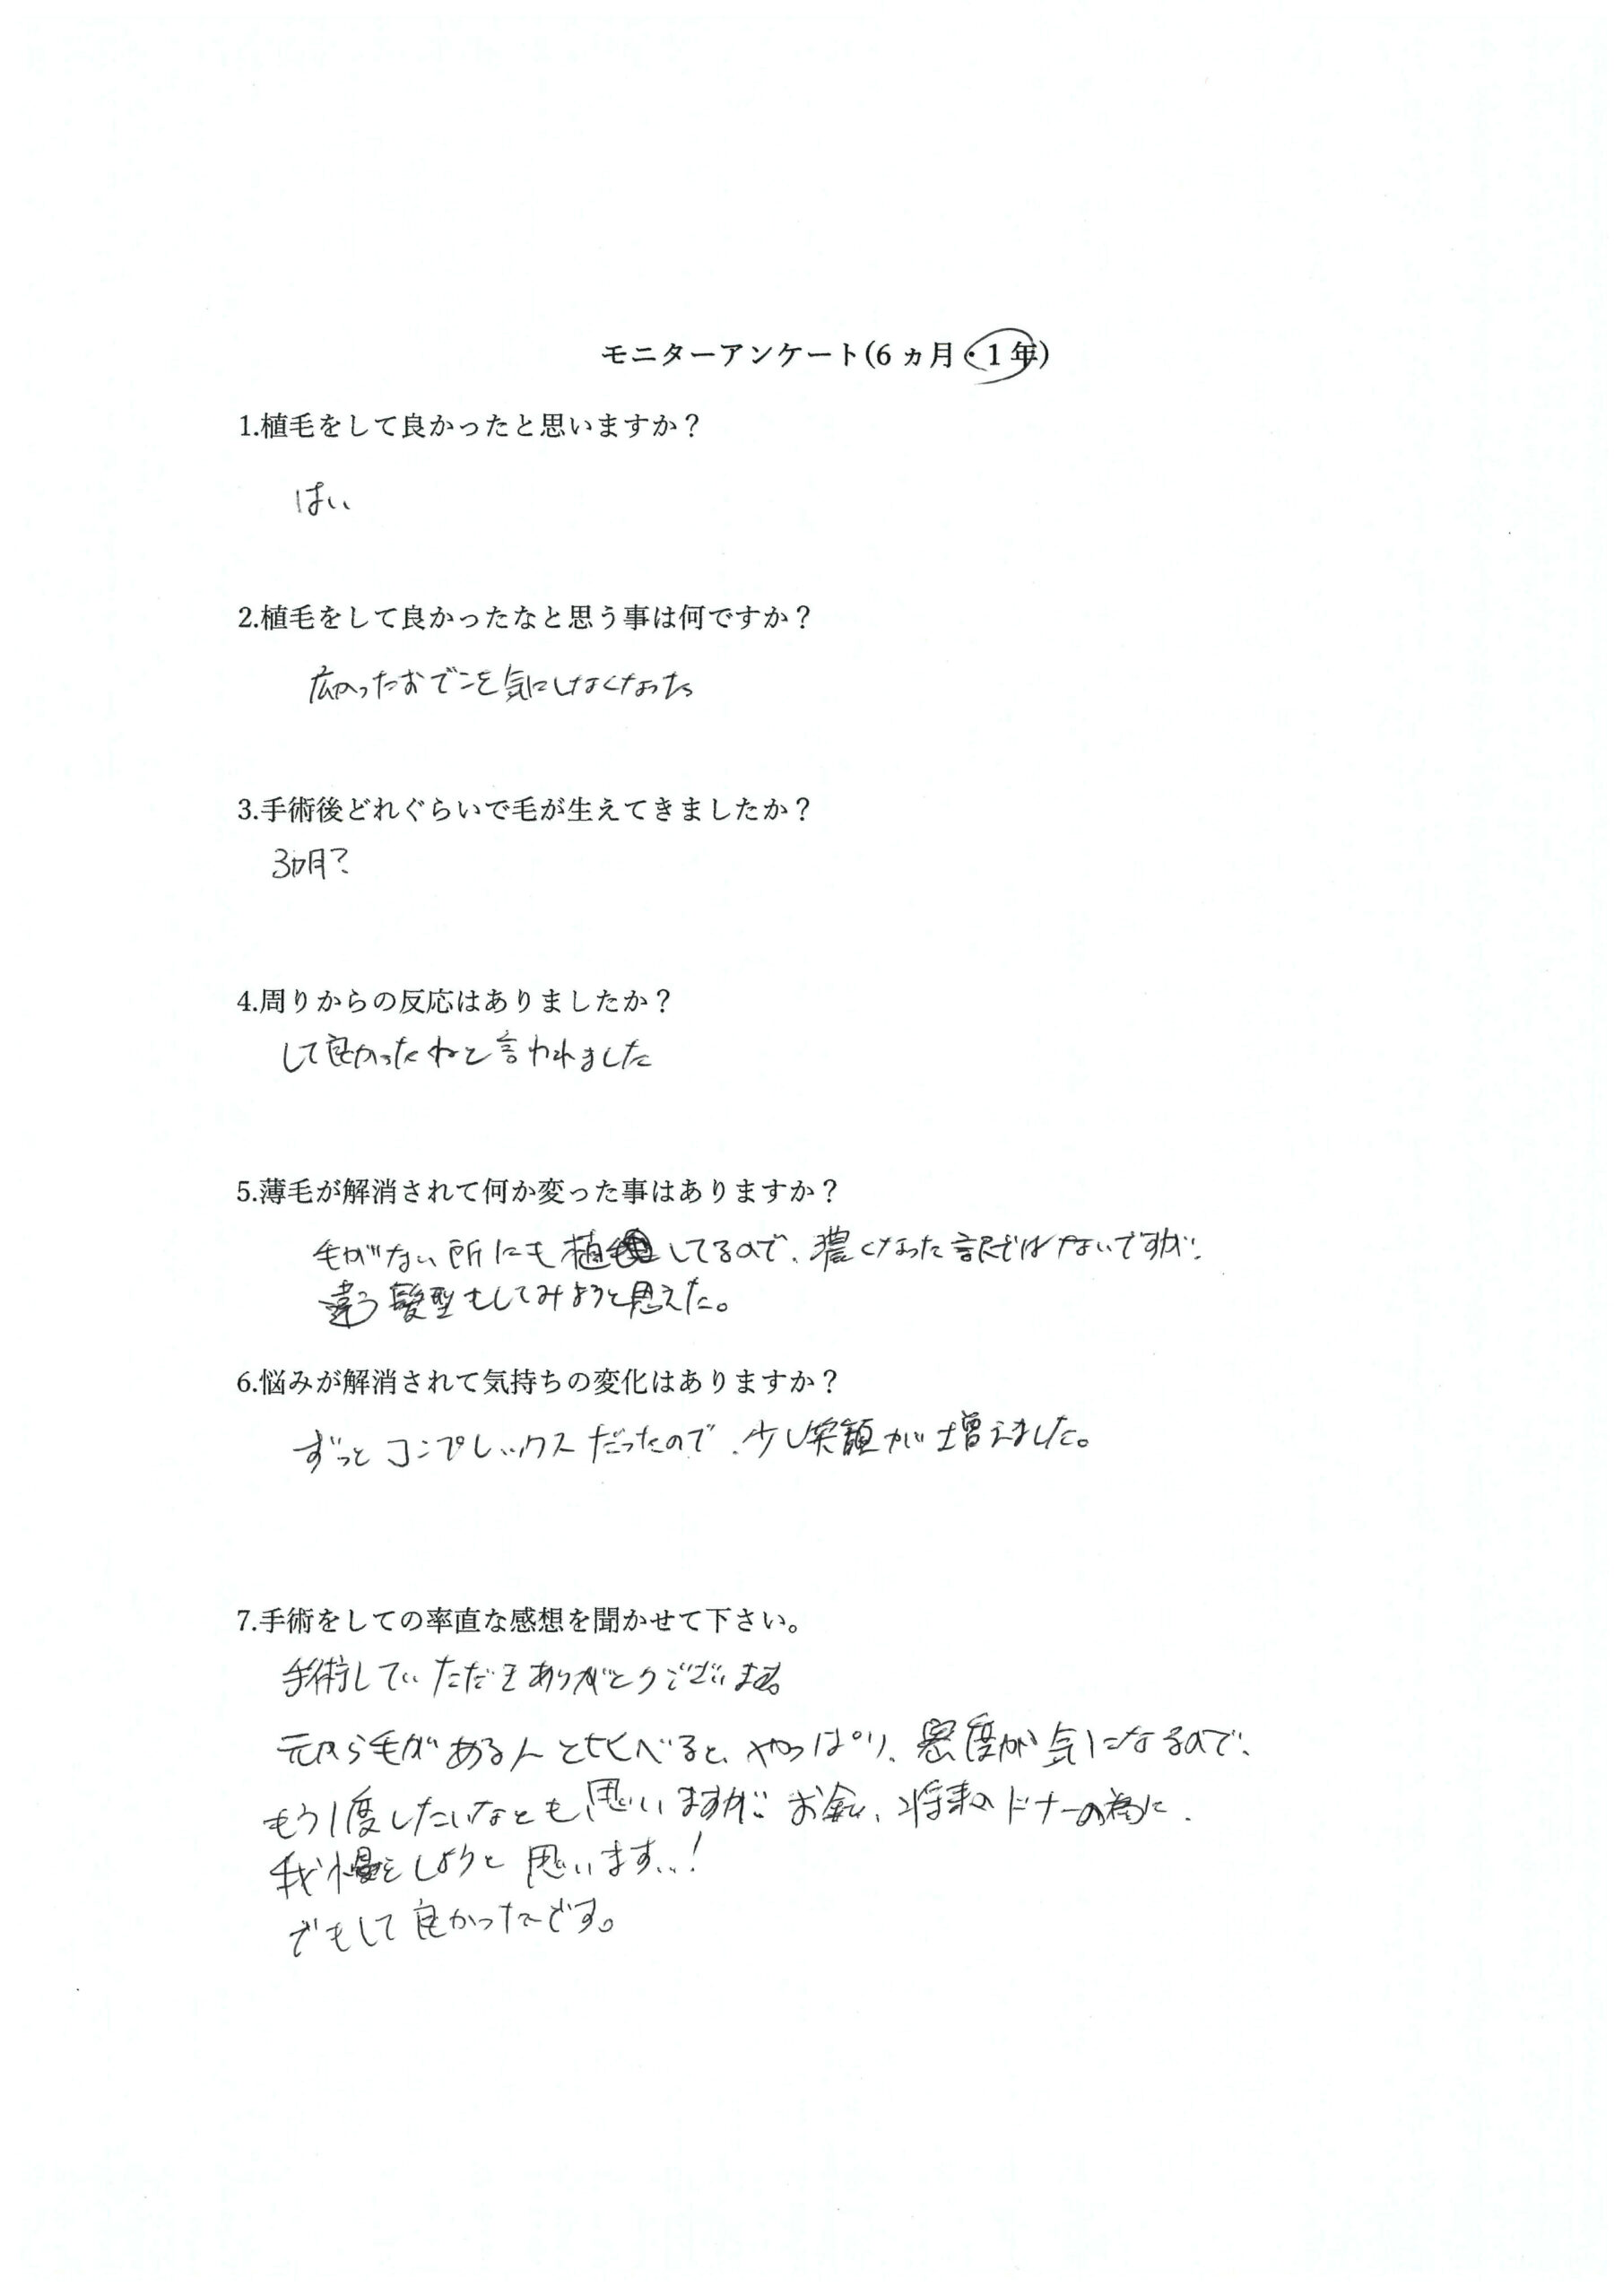 モニターアンケート(6ヵ月・1年)
1.植毛をして良かったと思いますか？
はい
2.植毛をして良かったなと思う事は何ですか？
広かったおでこを気にしなくなった
3.手術後どれぐらいで毛が生えてきましたか？
3ヵ月？
4.周りからの反応はありましたか？
して良かったねと言われました
5.薄毛が解消されて何か変った事はありますか？
毛がない所にも植毛してるので、濃くなった訳ではないですが、
違う髪型もしてみようと思えた。
6.悩みが解消されて気持ちの変化はありますか？
ずっとコンプレックスだったので、少し笑顔が増えました。
7.手術をしての率直な感想を聞かせて下さい。
手術していただきありがとうございます。
元から毛がある人と比べると、やっぱり、密度が気になるので、
もう1度したいなとも思いますが、お金、将来のドナーの為に、
我慢をしようと思います…！
でもして良かったです。